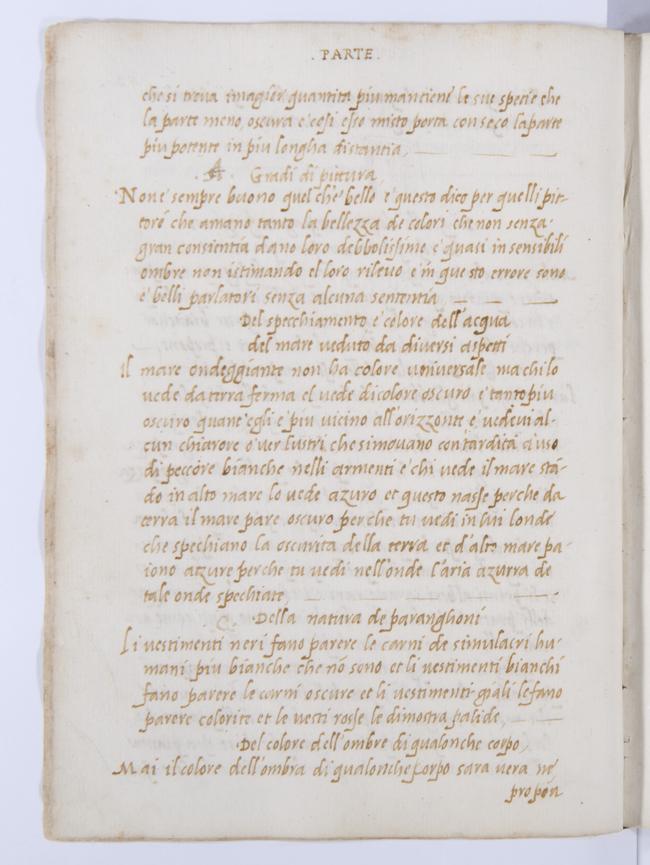 . PARTE .
che si trova imagier quantita piu mantiene le sue specie che
la parte meno, oscura e cosi esso misto porta con seco la parte
piu potente in piu longha distantia,
Gradi di pittura,
Non e sempre buono quel ch'e bello e questo dico per quelli pit-
tore che amano tanto la bellezza de colori che non senza
gran consientia dano loro debbolissime e quasi insensibili
ombre non istimando el loro rilevo e in questo errore sono
e belli parlatori senza alcuna sententia
Del specchiamento e colore dell'acqua
del mare veduto da diversi aspetti
Il mare ondeggiante non ha colore universale ma chi lo
vede da terra ferma el vede di colore oscuro e tanto piu
oscuro quant'egli e piu vicino all'orizzonte e vedevi al-
cun chiarore over lustri che si movano con tardita a uso
di peccore bianche nelli armenti e chi vede il mare stā-
do in alto mare lo vede azuro et questo nasse perche da
terra il mare pare oscuro perche tu vedi in lui londe
che spechiano la oscurita della terra et d'alto mare pa-
iono atzure perche tu vedi nell'onde l'aria azurra de
tale onde spechiate
Della natura de paranghoni
Li vestimenti neri fano parere le carni de simulacri hu-
mani piu bianche che nō sono et li vestimenti bianchi
fano parere le carni oscure et li vestimenti giali le fano
parere colorite et le vesti rosse le dimostra palide,
Del colore dell'ombre di qualonche corpo,
Mai il colore dell'ombra di qualonche corpo sara vera ne
propia